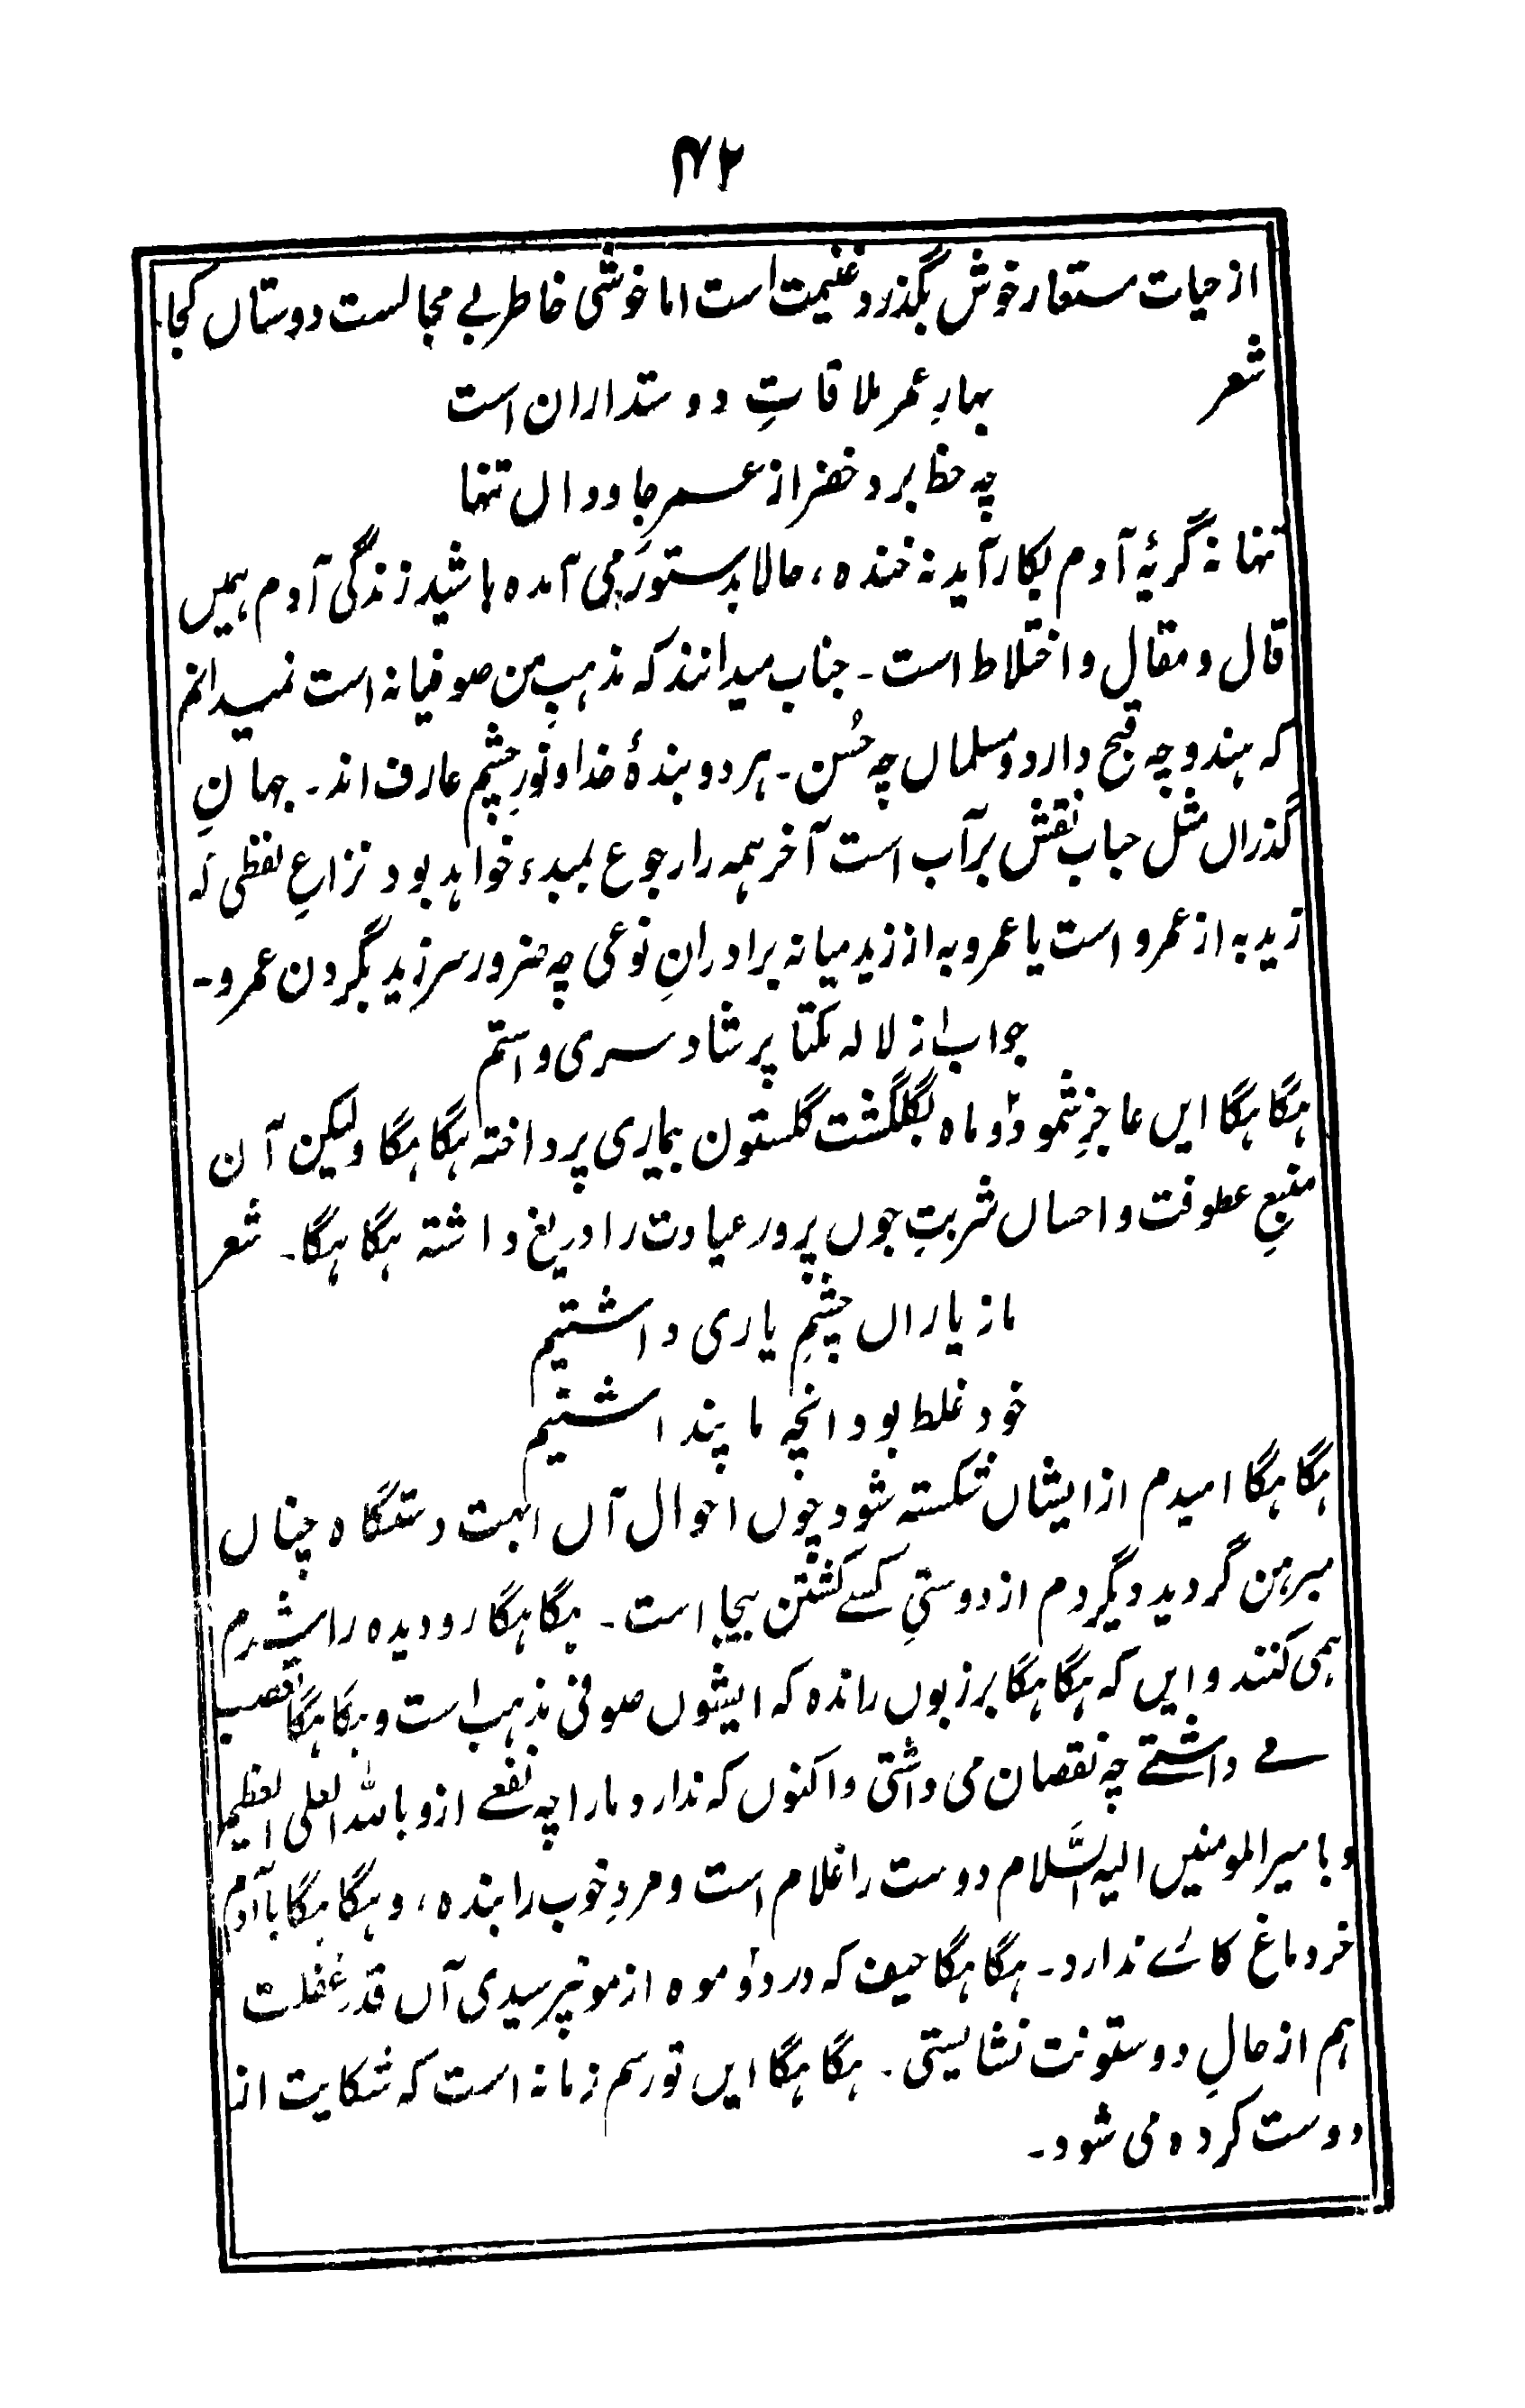 ۴۲
از حیات مستعار خوش بگذرد غنیمت است اما خوشی خاطر بے مجالست دوستاں کجا
شعر
بہارِ عمر ملاقاتِ دوستداران است
چہ حظ برد خضر از عمرِ جاوداں تنہا
تنہا نہ گریۂ آدم بکار آید نہ خندہ، حالا بدستور می آمدہ باشید زندگی آدم ہمیں
قال و مقال و اختلاط است۔ جناب میدانند کہ مذہبِ من صوفیانہ است نمیدانم
کہ ہندو چہ قبح دارد و مسلماں چہ حُسن۔ ہر دو بندۂ خدا و نورِ چشمِ عارف اند۔ جہانِ
گذراں مثل حباب نقش بر آب است آخر ہمہ را رجوع بمبدء خواہد بود نزاعِ لفظی کہ
زید بہ از عمرو است یا عمرو بہ از زید میانہ برادرانِ نوعی چہ ضرور سر زید بگردن عمرو۔
جواب از لالہ مکتا پرشاد سری واستم
ہگا ہگا ایں عاجزِ شمو دُو ماہ بگلگشت گلستون بیماری پرداختہ ہگا ہگا ولیکن آن
منبعِ عطوفت و احساں شربتِ جوں پرور عیادت را دریغ داشتہ ہگا ہگا۔ شعر
ما ز یاراں چشمِ یاری داشتیم
خود غلط بود انچہ ما پنداشتیم
ہگا ہگا امیدم از ایشاں شکستہ شود چوں احوال آں ابہت دستگاہ چناں
مبرہن گردید دیگر دم از دوستیِ کسے کشتن بیجا است۔ ہگا ہگا رو دیدہ را شرم
ہمی کنند و ایں کہ ہگا ہگا بر زبوں راندہ کہ ایشوں صوفی مذہب است و ہگا ہگا تعصب
مے داشتے چہ نقصان می داشتی و اکنوں کہ ندارد ما را چہ نفعے ازو باللہ العلی العظیم
و بامیر المومنیں الیہ السَّلام دوست را غلام است و مردِ خوب را بندہ، و ہگا ہگا با آدم
خر دماغ کائے ندارد۔ ہگا ہگا حیف کہ در دُو موہ از مو نپرسیدی آں قدر غفلت
ہم از حالِ دوستونت نشایستی۔ ہگا ہگا ایں تو رسم زمانہ است کہ شکایت از
دوست کردہ می شود۔